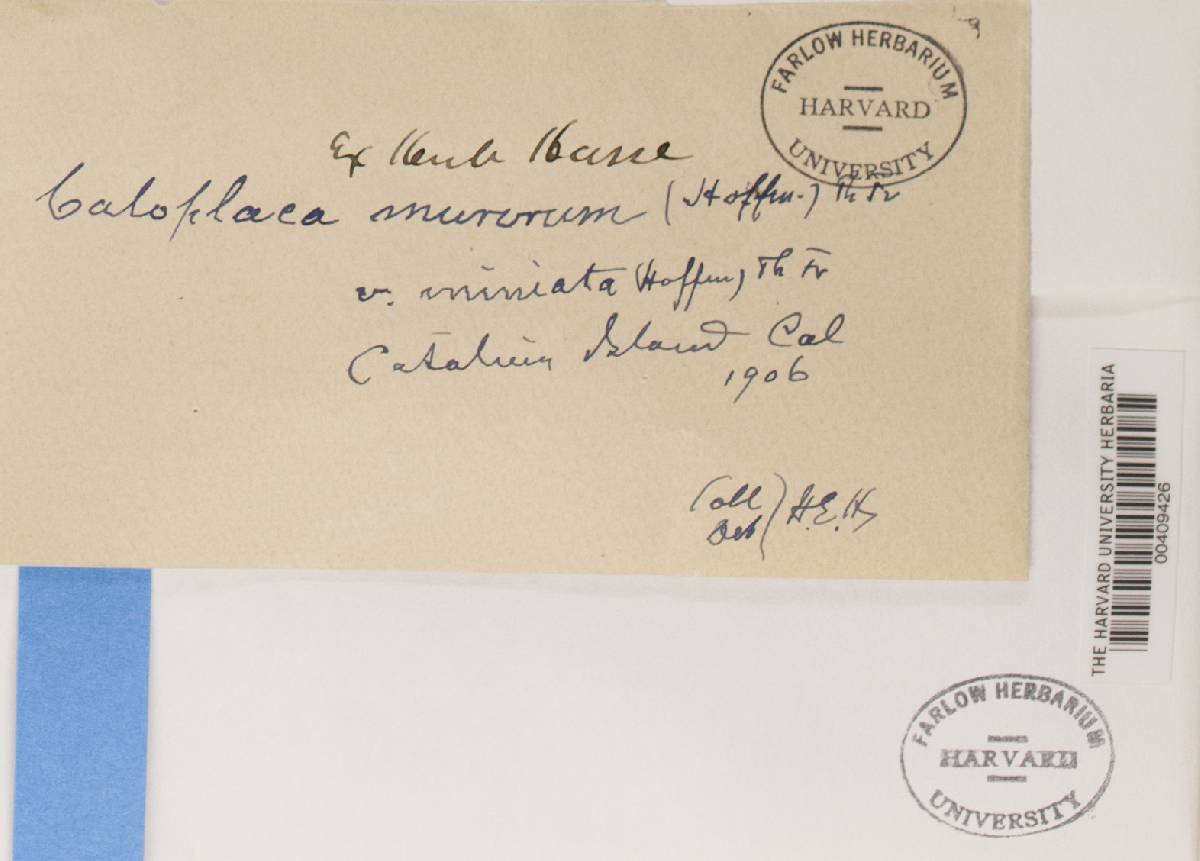 FARLOW HERBARIUM
HARVARD
UNIVERSITY
Ex Herb Hasse
Caloplaca murorum (Hoffm.) Th Fr
v. miniata (Hoffm) Th Fr
Catalina Island Cal
1906
Coll
Det) H.E.H
THE HARVARD UNIVERSITY HERBARIA
00409426
FARLOW HERBARIUM
HARVARD
UNIVERSITY